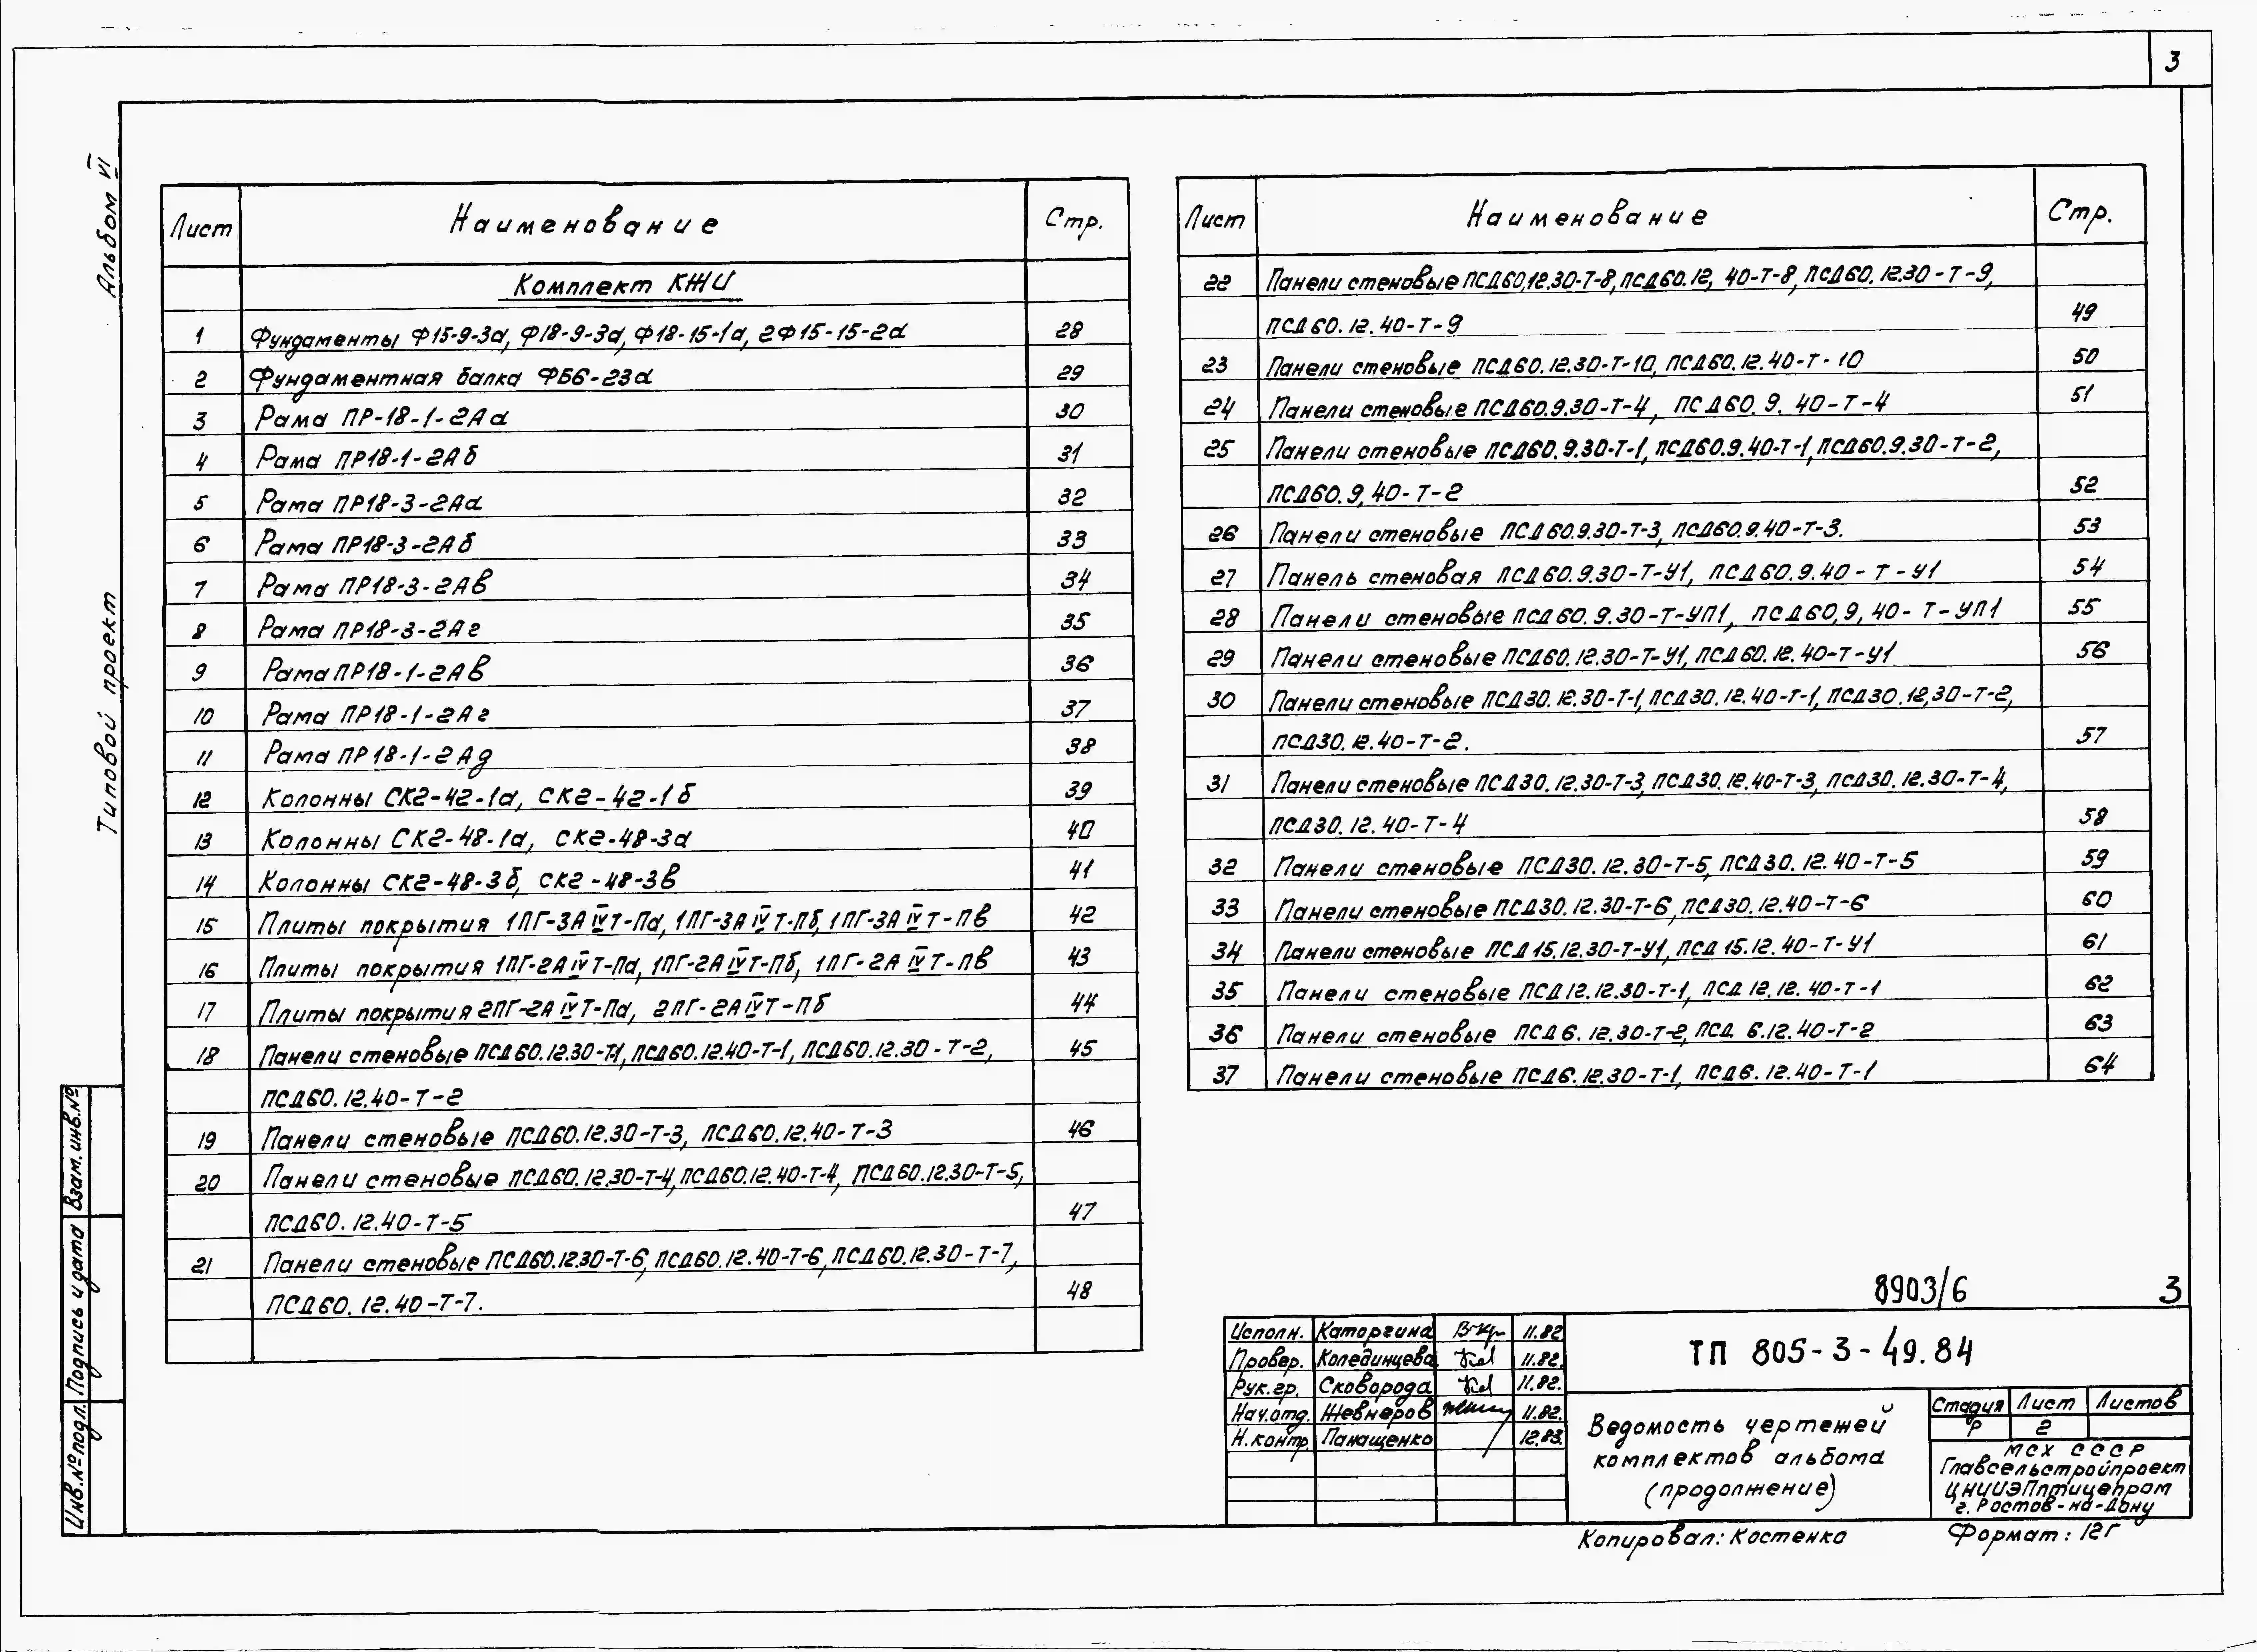 3
Альбом VI
Типовой проект
Лист Наименование Стр.
Комплект КЖИ
1 Фундаменты Ф15-9-3а, Ф18-9-3а, Ф18-15-1а, 2Ф15-15-2а 28
2 Фундаментная балка ФБ6-23а 29
3 Рама ПР-18-1-2Аа 30
4 Рама ПР18-1-2Аб 31
5 Рама ПР18-3-2Аа 32
6 Рама ПР18-3-2Аб 33
7 Рама ПР18-3-2Ав 34
8 Рама ПР18-3-2Аг 35
9 Рама ПР18-1-2Ав 36
10 Рама ПР18-1-2Аг 37
11 Рама ПР18-1-2Ад 38
12 Колонны СК2-42-1а, СК2-42-1б 39
13 Колонны СК2-48-1а, СК2-48-3а 40
14 Колонны СК2-48-3б, СК2-48-3в 41
15 Плиты покрытия 1ПГ-3АIVТ-Па, 1ПГ-3АIVТ-Пб, 1ПГ-3АIVТ-Пв 42
16 Плиты покрытия 1ПГ-2АIVТ-Па, 1ПГ-2АIVТ-Пб, 1ПГ-2АIVТ-Пв 43
17 Плиты покрытия 2ПГ-2АIVТ-Па, 2ПГ-2АIVТ-Пб 44
18 Панели стеновые ПСД60.12.30-Т-1, ПСД60.12.40-Т-1, ПСД60.12.30-Т-2, 45
ПСД60.12.40-Т-2
19 Панели стеновые ПСД60.12.30-Т-3, ПСД60.12.40-Т-3 46
20 Панели стеновые ПСД60.12.30-Т-4, ПСД60.12.40-Т-4, ПСД60.12.30-Т-5,
ПСД60.12.40-Т-5 47
21 Панели стеновые ПСД60.12.30-Т-6, ПСД60.12.40-Т-6, ПСД60.12.30-Т-7,
ПСД60.12.40-Т-7. 48
Лист Наименование Стр.
22 Панели стеновые ПСД60,12.30-Т-8, ПСД60.12, 40-Т-8, ПСД60.12.30-Т-9,
ПСД60.12.40-Т-9 49
23 Панели стеновые ПСД60.12.30-Т-10, ПСД60.12.40-Т-10 50
24 Панели стеновые ПСД60.9.30-Т-4, ПСД60.9.40-Т-4 51
25 Панели стеновые ПСД60.9.30-Т-1, ПСД60.9.40-Т-1, ПСД60.9.30-Т-2,
ПСД60.9,40-Т-2 52
26 Панели стеновые ПСД60.9.30-Т-3, ПСД60.9.40-Т-3. 53
27 Панель стеновая ПСД60.9.30-Т-У1, ПСД60.9.40-Т-У1 54
28 Панели стеновые ПСД60.9.30-Т-УП1, ПСД60,9,40-Т-УП1 55
29 Панели стеновые ПСД60.12.30-Т-У1, ПСД60.12.40-Т-У1 56
30 Панели стеновые ПСД30.12.30-Т-1, ПСД30.12.40-Т-1, ПСД30.12,30-Т-2,
ПСД30.12.40-Т-2. 57
31 Панели стеновые ПСД30.12.30-Т-3, ПСД30.12.40-Т-3, ПСД30.12.30-Т-4,
ПСД30.12.40-Т-4 58
32 Панели стеновые ПСД30.12.30-Т-5, ПСД30.12.40-Т-5 59
33 Панели стеновые ПСД30.12.30-Т-6, ПСД30.12.40-Т-6 60
34 Панели стеновые ПСД15.12.30-Т-У1, ПСД15.12.40-Т-У1 61
35 Панели стеновые ПСД12.12.30-Т-1, ПСД12.12.40-Т-1 62
36 Панели стеновые ПСД6.12.30-Т-2, ПСД 6.12.40-Т-2 63
37 Панели стеновые ПСД6.12.30-Т-1, ПСД6.12.40-Т-1 64
Взам. инв.№
Подпись и дата
Инв.№подл.
8903/6 3
Исполн. Каторгина 11.82
Провер. Колединцева 11.82.
Рук.гр. Сковорода 11.82.
Нач.отд. Жевнеров 11.82.
Н.контр. Панащенко 12.83.
ТП 805-3-49.84
Ведомость чертежей
комплектов альбома
(продолжение)
Стадия Лист Листов
Р 2
МСХ СССР
Главсельстройпроект
ЦНИИЭПптицепром
г. Ростов-на-Дону
Копировал: Костенко Формат: 12Г